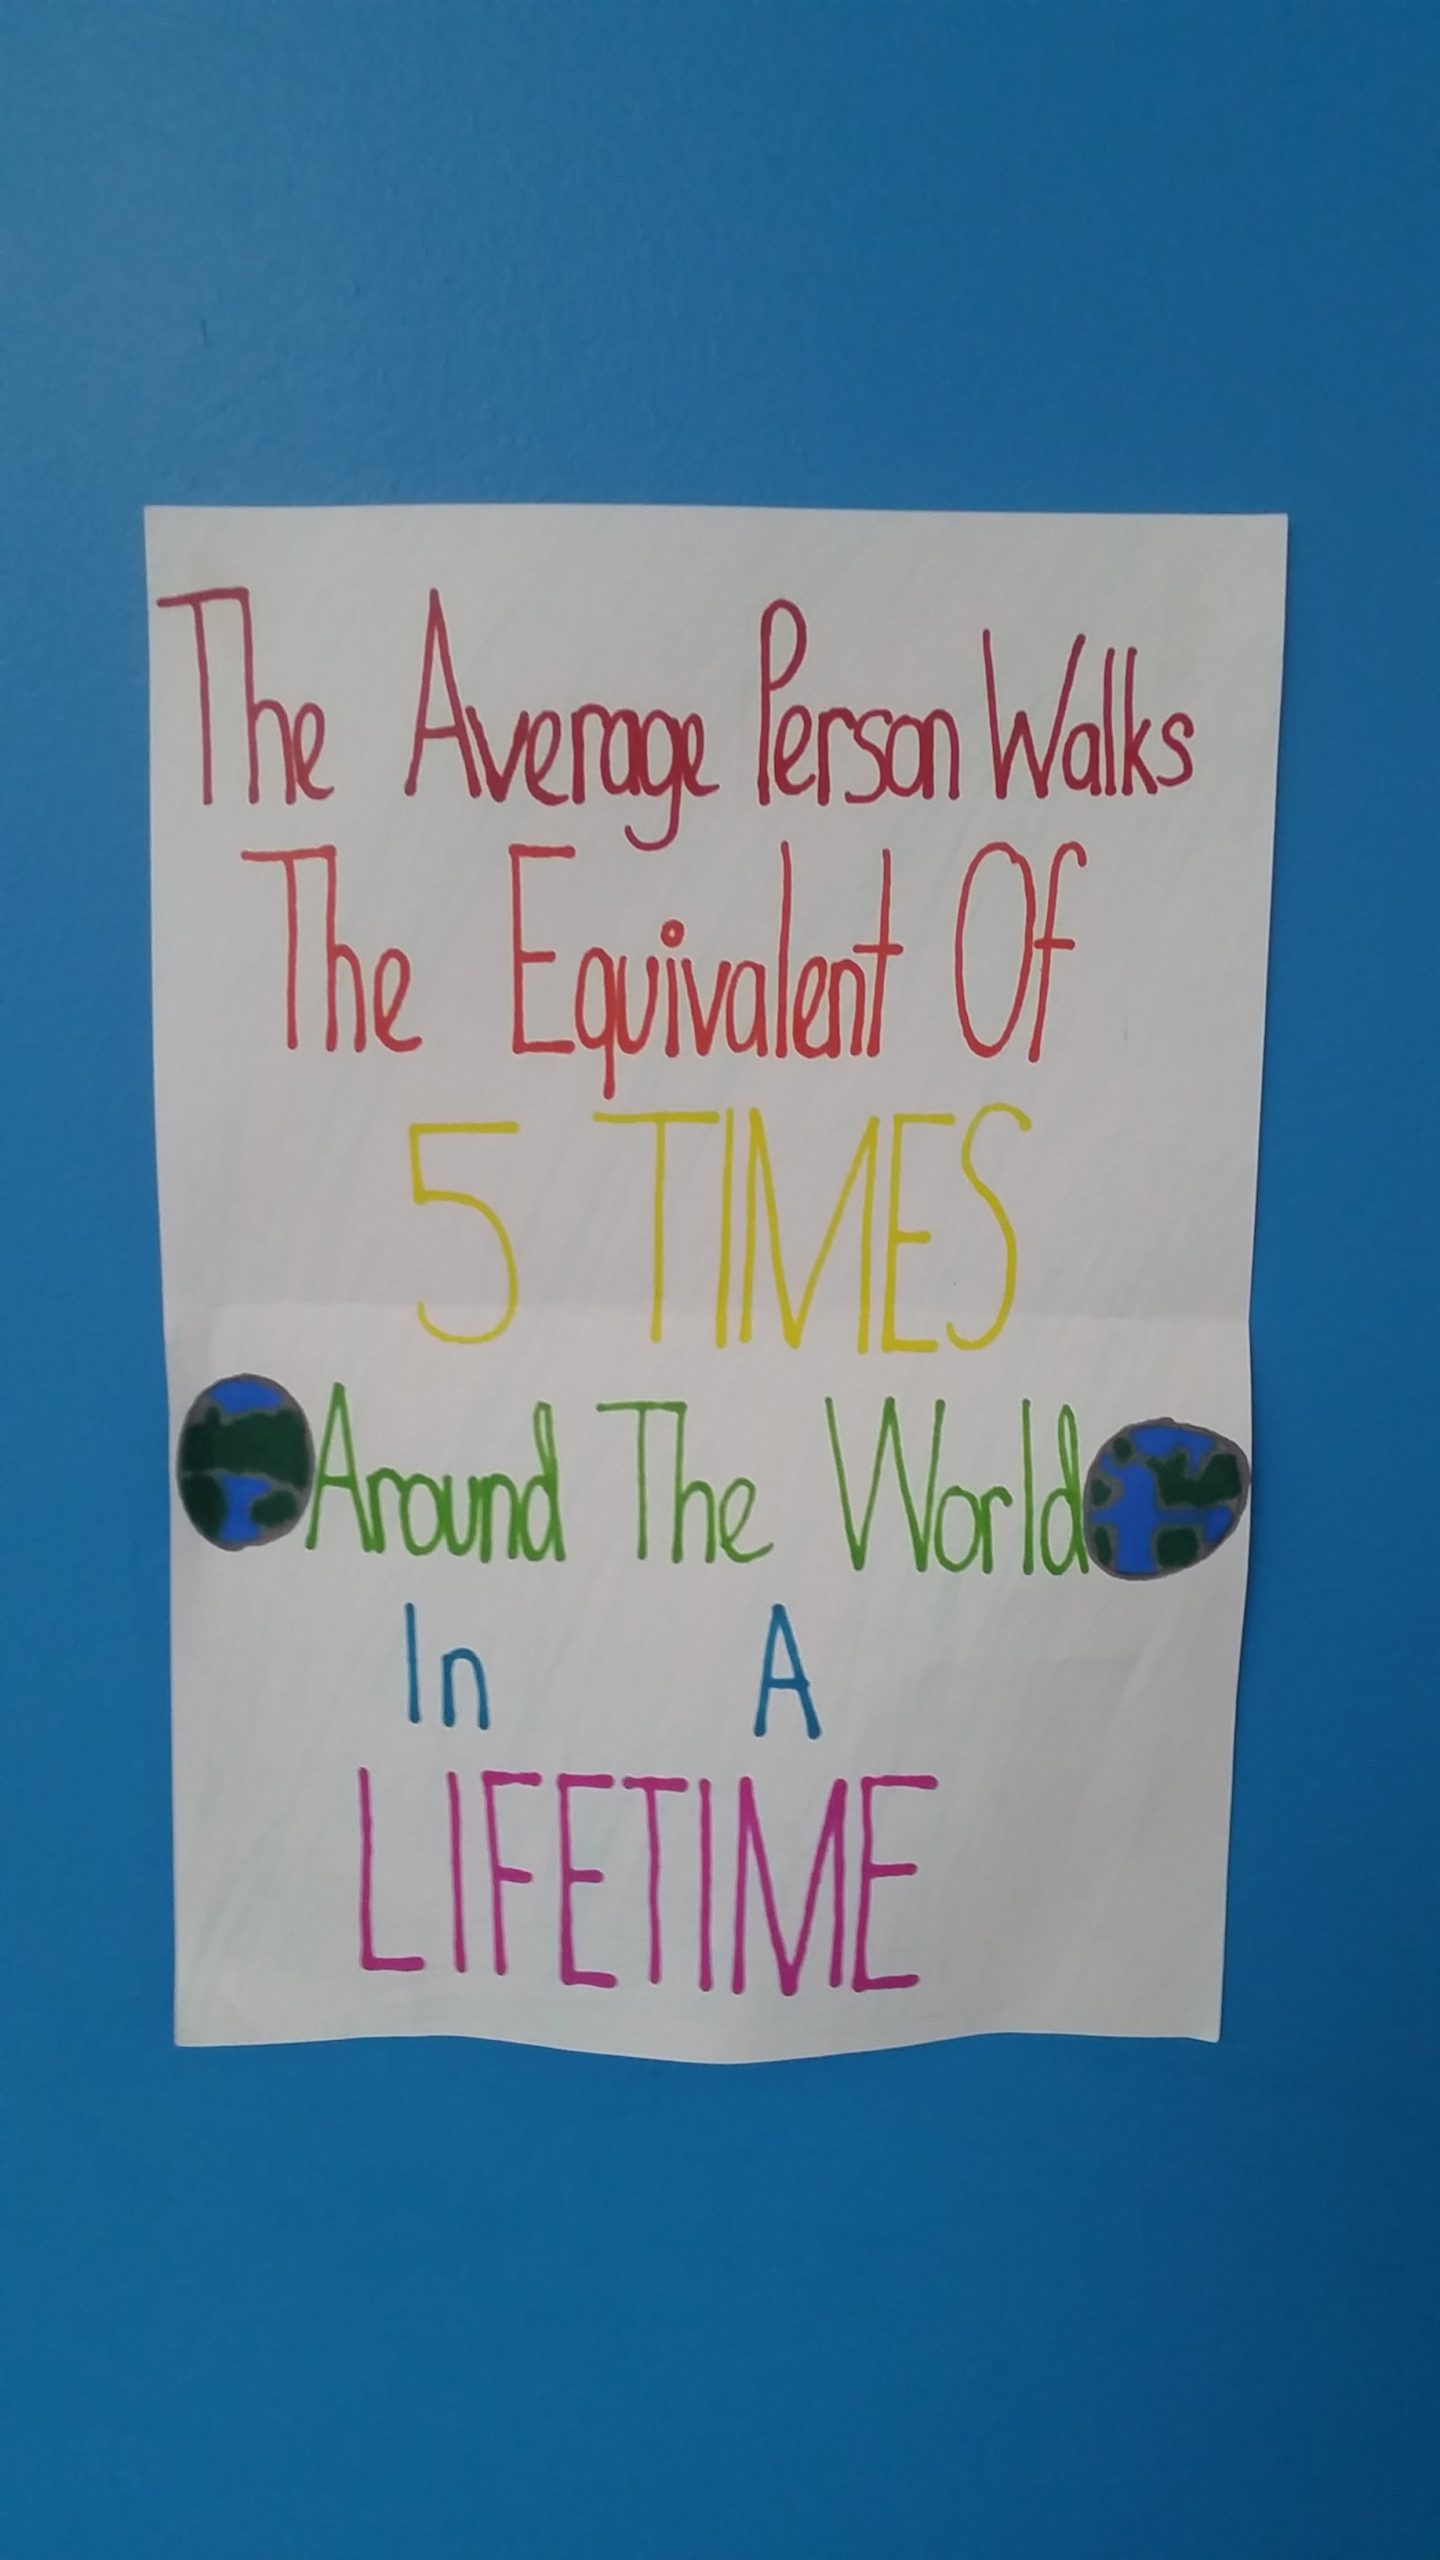 The Average Person Walks
The Equivalent Of
5 TIMES
Around The World
In A
LIFETIME